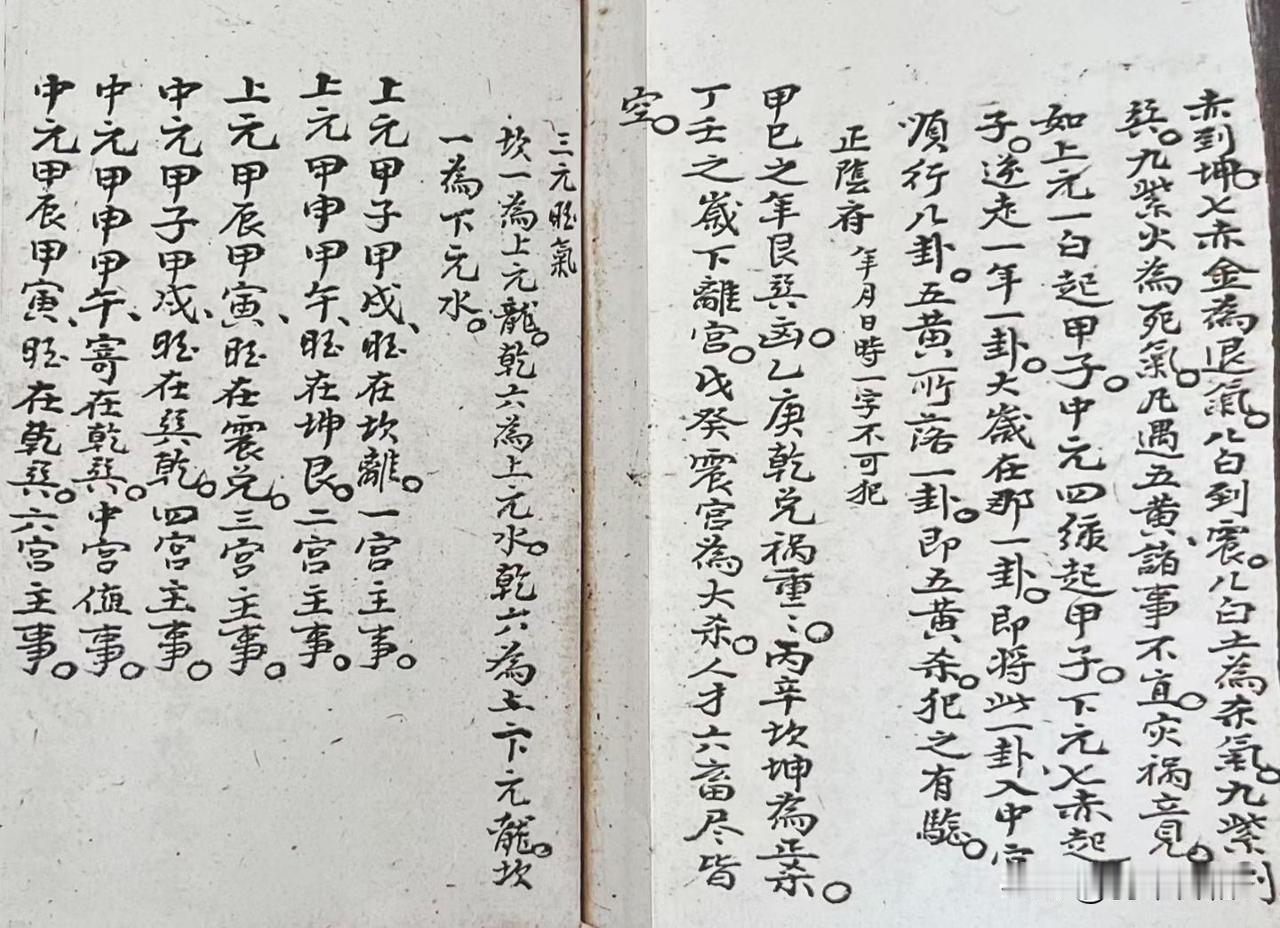 赤到坤。七赤金為退氣。八白到震。八白土為杀氣。九紫到
巽。九紫火為死氣。凡遇五黄、諸事不宜。灾祸立見。
如上元一白起甲子。中元四綠起甲子。下元七赤起
子。逆走一年一卦。大歲在那一卦。即将此一卦、入中宫
順行八卦。五黄所落一卦。即五黄杀。犯之有驗。
正陰府 年月日時一字不可犯
甲巳之年艮巽凶。乙庚乾兑祸重〻。丙辛坎坤為正杀。
丁壬之歲下離宫。戊癸震宫為大杀。人才六畜尽皆
空。
三元旺氣
坎一為上元龍。乾六為上元水。乾六為下元龍。坎
一為下元水。
上元甲子甲戍、旺在坎離。一宫主事。
上元甲申甲午、旺在坤艮。二宫主事。
上元甲辰甲寅、旺在震兑。三宫主事。
中元甲子甲戍、旺在巽乾。四宫主事。
中元甲申甲午、寄在乾巽。中宫值事。
中元甲辰甲寅、旺在乾巽。六宫主事。